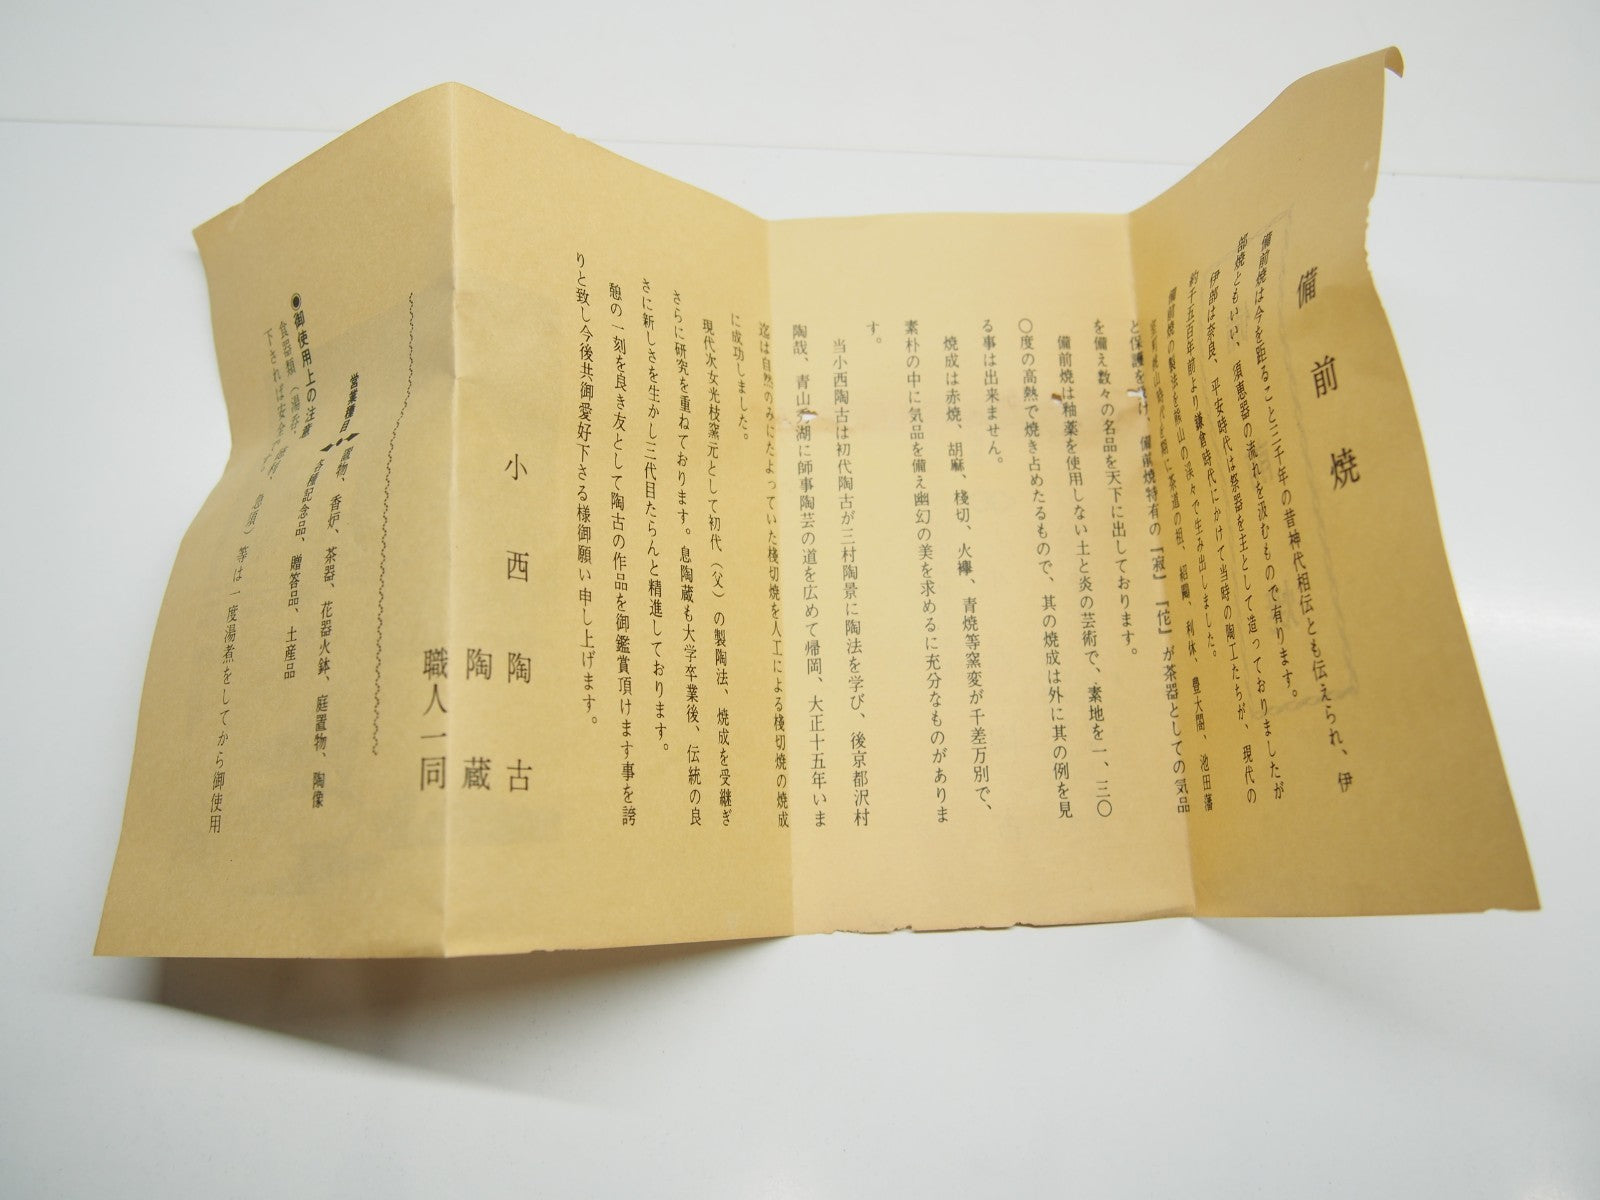 備前焼
備前焼は今を距ること二千年の昔神代相伝とも伝えられ、伊
部焼ともいい、須恵器の流れを汲むもので有ります。
伊部は奈良、平安時代は祭器を主として造っておりましたが
約千五百年前より鎌倉時代にかけて当時の陶工たちが、現代の
備前焼の製法を熊山の渓々で生み出しました。
桃山時代 に茶道の祖、紹鷗、利休、豊太閤、池田藩
と保護を受け、備前焼特有の『寂』『佗』が茶器としての気品
を備え数々の名品を天下に出しております。
備前焼は釉薬を使用しない土と炎の芸術で、素地を一、三〇
〇度の高熱で焼き占めたるもので、其の焼成は外に其の例を見
る事は出来ません。
焼成は赤焼、胡麻、棧切、火襷、青焼等窯変が千差万別で、
素朴の中に気品を備え幽幻の美を求めるに充分なものがありま
す。
当小西陶古は初代陶古が三村陶景に陶法を学び、後京都沢村
陶哉、青山秀湖に師事陶芸の道を広めて帰岡、大正十五年いま
迄は自然のみにたよっていた棧切焼を人工による棧切焼の焼成
に成功しました。
現代次女光枝窯元として初代（父）の製陶法、焼成を受継ぎ
さらに研究を重ねております。息陶蔵も大学卒業後、伝統の良
さに新しさを生かし三代目たらんと精進しております。
憩の一刻を良き友として陶古の作品を御鑑賞頂けます事を誇
りと致し今後共御愛好下さる様御願い申し上げます。
小西陶古
陶蔵
職人一同
営業種目 置物、香炉、茶器、花器火鉢、庭置物、陶像
各種記念品、贈答品、土産品
◉御使用上の注意
食器類（湯呑、徳利、急須）等は一度湯煮をしてから御使用
下されば安全です。